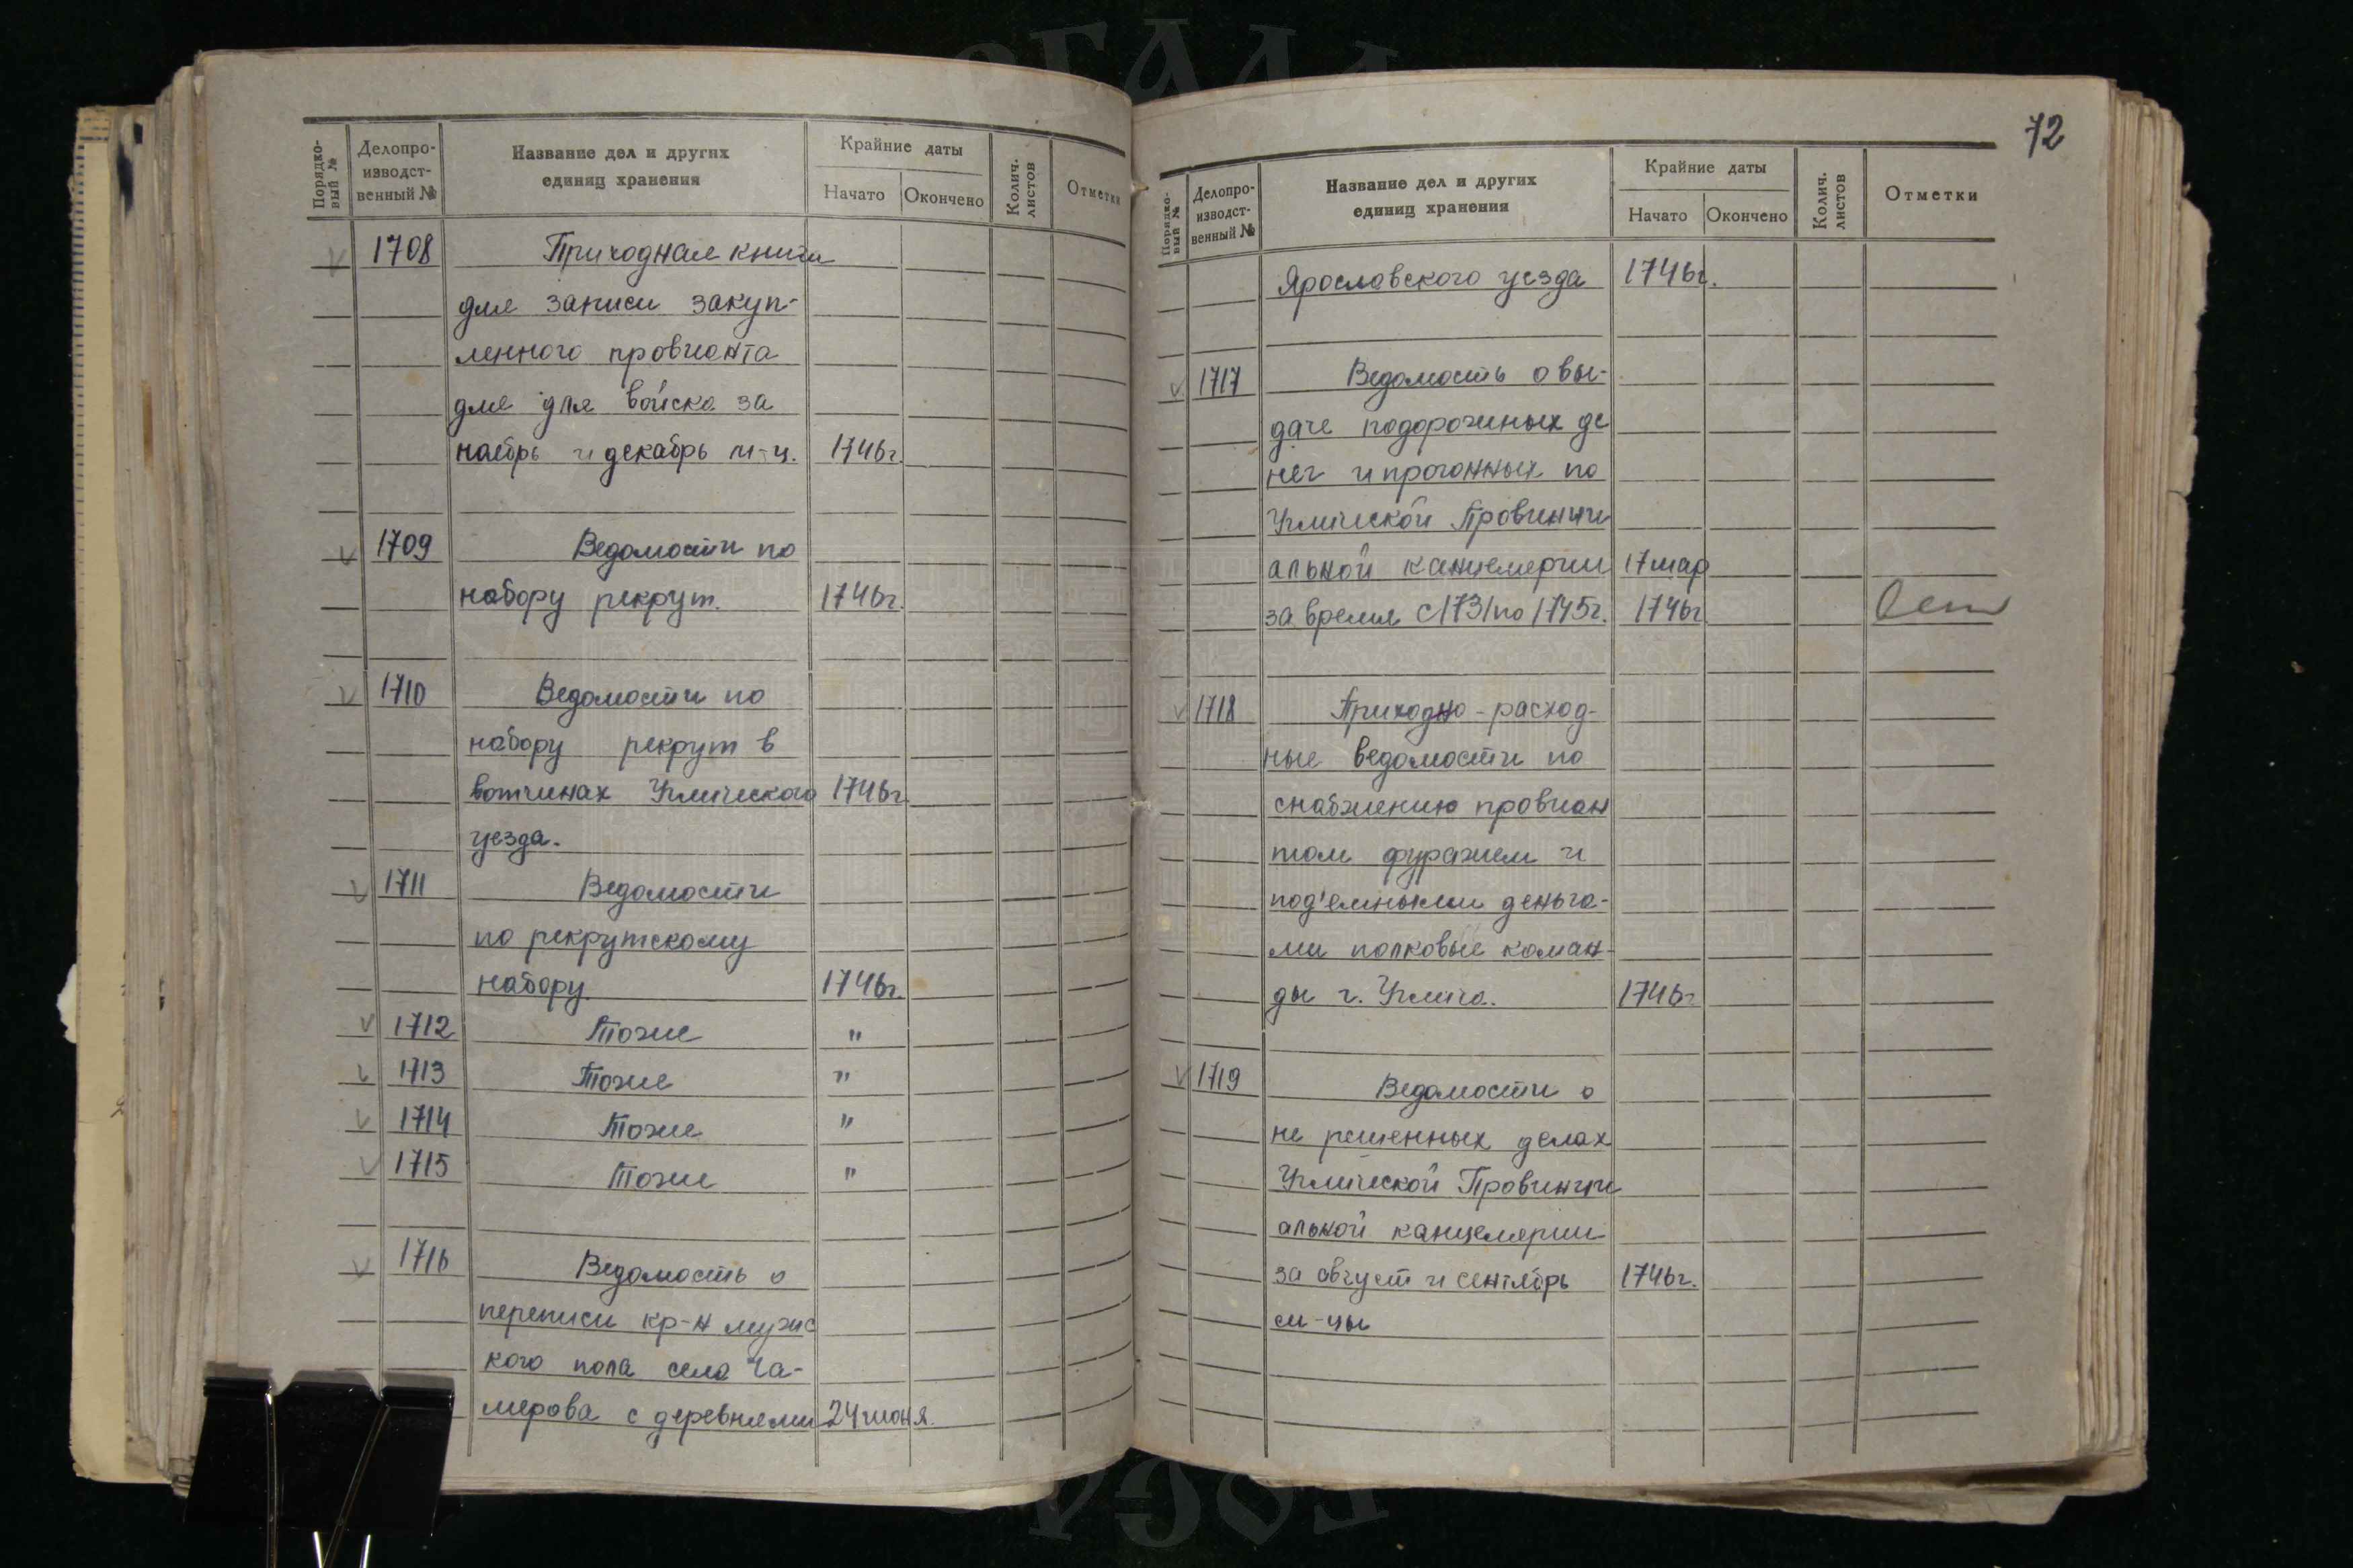 Порядко-
вый №
Делопро-
изводст-
венный №
Название дел и других
единиц хранения
Крайние даты
Начато Окончено
Колич.
листов
Отметки
1708 Приходная книга
для записи закуп-
ленного провианта
для для войска за
ноябрь и декабрь м-ц. 1746г.
1709 Ведомости по
набору рекрут. 1746г.
1710 Ведомости по
набору рекрут в
вотчинах Угличского 1746г
уезда.
1711 Ведомости
по рекрутскому
набору. 1746г.
1712 Тоже "
1713 Тоже "
1714 Тоже "
1715 Тоже "
1716 Ведомость о
переписи кр-н мужс
кого пола села Ча-
мерова с деревнями 24 июня.
72
Порядко-
вый №
Делопро-
изводст-
венный №
Название дел и других
единиц хранения
Крайние даты
Начато Окончено
Колич.
листов
Отметки
Ярославского уезда 1746г.
1717 Ведомость о вы-
даче подорожных де
нег и прогонных по
Угличской Провинци
альной канцелярии 17 мар
за время с 1731 по 1745г. 1746г.
1718 Приходно-расход-
ные ведомости по
снабжению провиан
том фуражем и
под'емными деньга-
ми полковые коман-
ды г. Углича. 1746г
1719 Ведомости о
не решенных делах
Угличской Провинци
альной канцелярии
за август и сентябрь 1746г.
м-цы